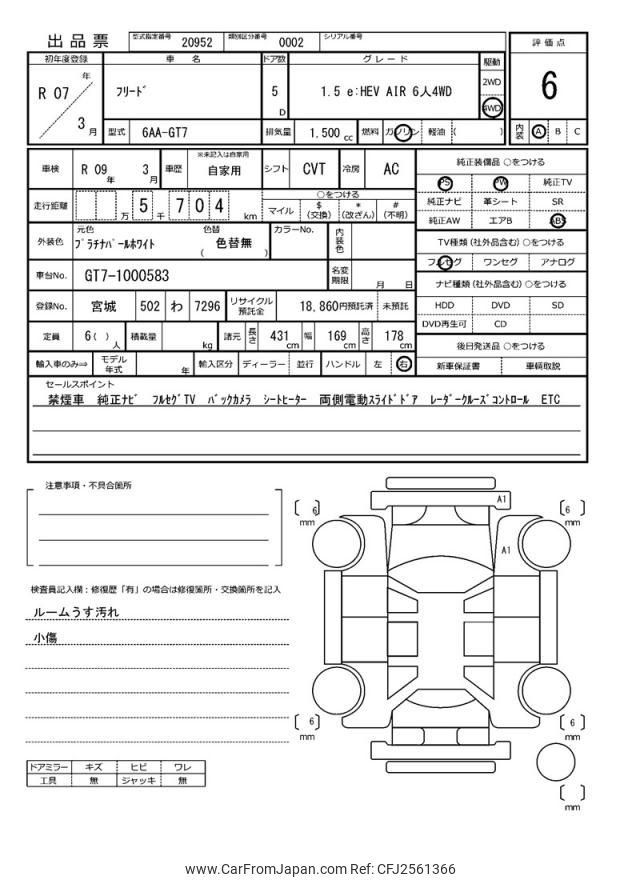 出品票 型式指定番号 20952 類別区分番号 0002 シリアル番号
評価点
6
内装 A B C
初年度登録 車名 ドア数 グレード 駆動
R 07 年 3 月
フリード 5 D 1.5 e:HEV AIR 6人4WD 2WD 4WD
型式 6AA-GT7 排気量 1.500 cc 燃料 ガソリン 軽油 ( )
車検 R 09 年 3 月 車歴 ※未記入は自家用 自家用 シフト CVT 冷房 AC
走行距離 万 5 千 7 0 4 km
○をつける
マイル $ (交換) * (改ざん) # (不明)
外装色 元色 プラチナパールホワイト 色替 ( 色替無 ) カラーNo. 内装色
車台No. GT7-1000583 名変期限 月 日
登録No. 宮城 502 わ 7296 リサイクル預託金 18,860円預託済 未預託
定員 6( ) 人 積載量 kg 諸元 長さ 431 cm 幅 169 cm 高さ 178 cm
輸入車のみ⇒ モデル年式 年 輸入区分 ディーラー 並行 ハンドル 左 右
純正装備品 ○をつける
PS PW 純正TV
純正ナビ 革シート SR
純正AW エアB ABS
TV種類 (社外品含む) ○をつける
フルセグ ワンセグ アナログ
ナビ種類 (社外品含む) ○をつける
HDD DVD SD
DVD再生可 CD
後日発送品 ○をつける
新車保証書 車輌取説
セールスポイント
禁煙車 純正ナビ フルセグTV バックカメラ シートヒーター 両側電動スライドドア レーダークルーズコントロール ETC
注意事項・不具合箇所
検査員記入欄：修復歴「有」の場合は修復箇所・交換箇所を記入
ルームうす汚れ
小傷
ドアミラー キズ ヒビ ワレ
工具 無 ジャッキ 無
A1
A1
[ 6 ] mm
[ 6 ] mm
[ 6 ] mm
[ 6 ] mm
[ ] mm
www.CarFromJapan.com Ref: CFJ2561366